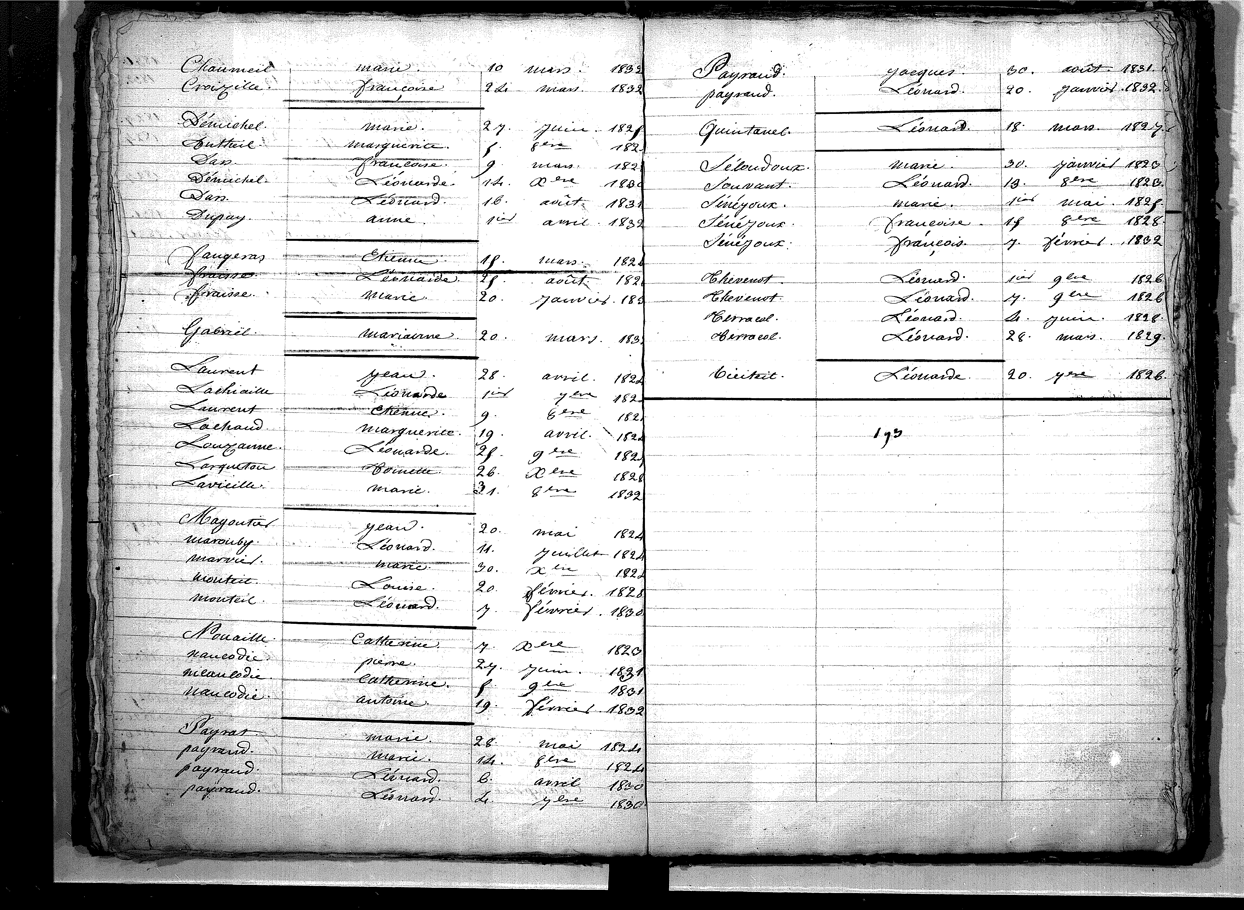 Chaumeil marie. 10 mars. 1832
Croizille. françoise 24. mars. 1832
Démichel. marie. 27. juin. 182
Dutheil marguerite. 5. 8ere 182
Dars. françoise. 9. mars. 182
Démichel. Léonarde. 14. Xere 1830
Dars. Léonard 16. août. 1831
Dupuy. anne. 1ier avril. 1832
faugeras Etienne. 15. mars. 182
fraisse Léonarde 25. août. 182
fraisse. marie. 20. janvier. 183
Gabriel. marianne 20. mars. 183
Laurent jean. 28. avril. 1824
Lachiaille Léonarde 1ier 7ere 182
Laurent Etienne. 9. 8ere 182
Lachaud. marguerite. 19. avril. 182
Louzanne. Léonarde. 25. 9ere 182
Larqueton Toinette. 26. Xere 1828
Lavieille. marie. 31. 8ere 1832
Magoutier jean. 20. mai 1824
marouby. Léonard. 11. juillet 1824
marvier. marie. 30. Xere 182
monteil. Louise. 20. février. 1828
monteil. Léonard. 7. février 1830
Nouaille. Catherine 7. Xere 1823
naucodie. pierre. 27. juin. 1831
neaucodie. Catherine. 5. 9ere 1831
naucodie. antoine 19. février. 1832
Payrat marie. 28. mai 1824
payraud. marie. 14. 8ere 1824
payraud. Léonard. 6. avril 1830
payraud. Léonard. 4. 7ere 1830.
Payraud. jacques 30. août. 1831.
payraud. Léonard. 20. janvier. 1832.
Quintanel. Léonard. 18. mars. 1827.
Séloudoux. marie. 30. janvier 1823
Souvant. Léonard. 13. 8ere 1823.
Sénéjoux. marie. 1ier mai. 1825
Sénéjoux. françoise. 15 8ere 1828
Sénéjoux. françois. 7. février. 1832
Thevenot. Léonard. 1ier 9ere 1826
Thevenot Léonard. 7. 9ere 1826
Terracol. Léonard. 4. juin. 1828.
Terracol. Léonard. 28. mars. 1829.
Léonarde. 20. 7ere 1826.
193